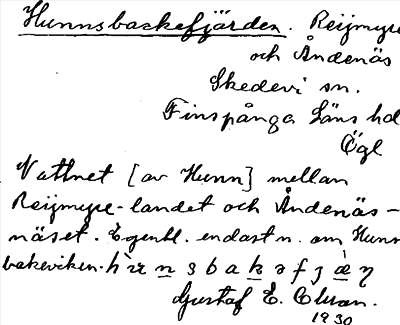 Hunnsbackefjärden. Reijmyre
och Åndenäs
Skedevi sn.
Finspånga Läns hd
Ögl
Vattnet [av Hunn] mellan
Reijmyre-landet och Åndenäs-
näset. Egentl. endast n. om Hunns
bakeviken.
Gustaf E. Olsson.
1930